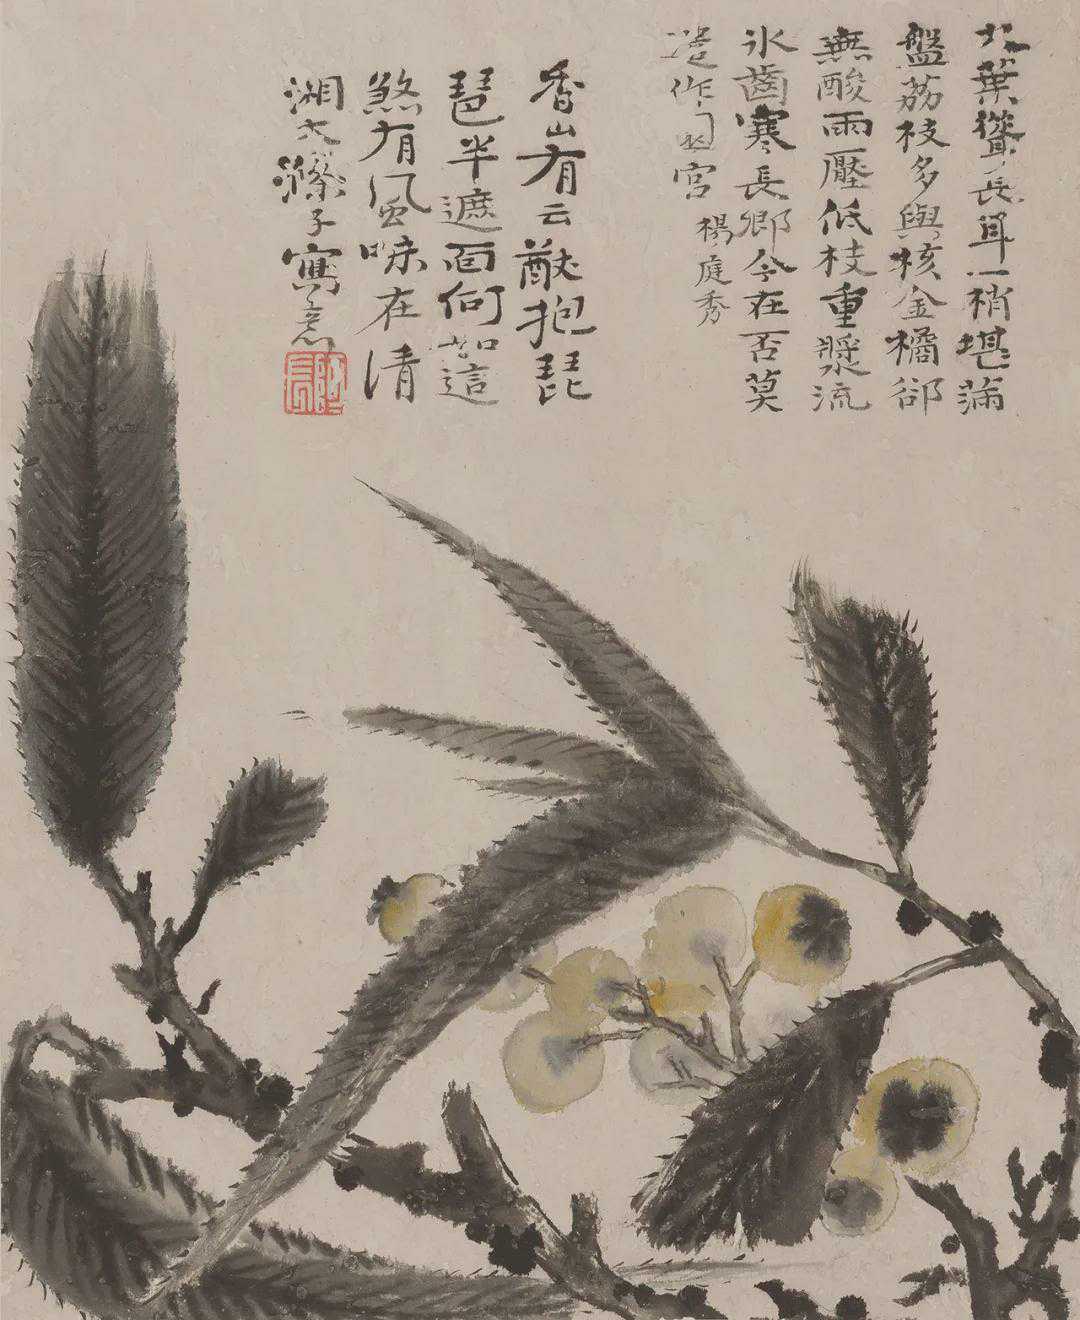 大葉聳長耳一梢堪滿
盤荔枝多與核金橘郤
無酸雨壓低枝重漿流
氷齒寒長卿今在否莫
遣作園官 楊庭秀
香山有云猷抱琵
琶半遮面何如這
煞有風味在清
湘大滌子寫意
阿長